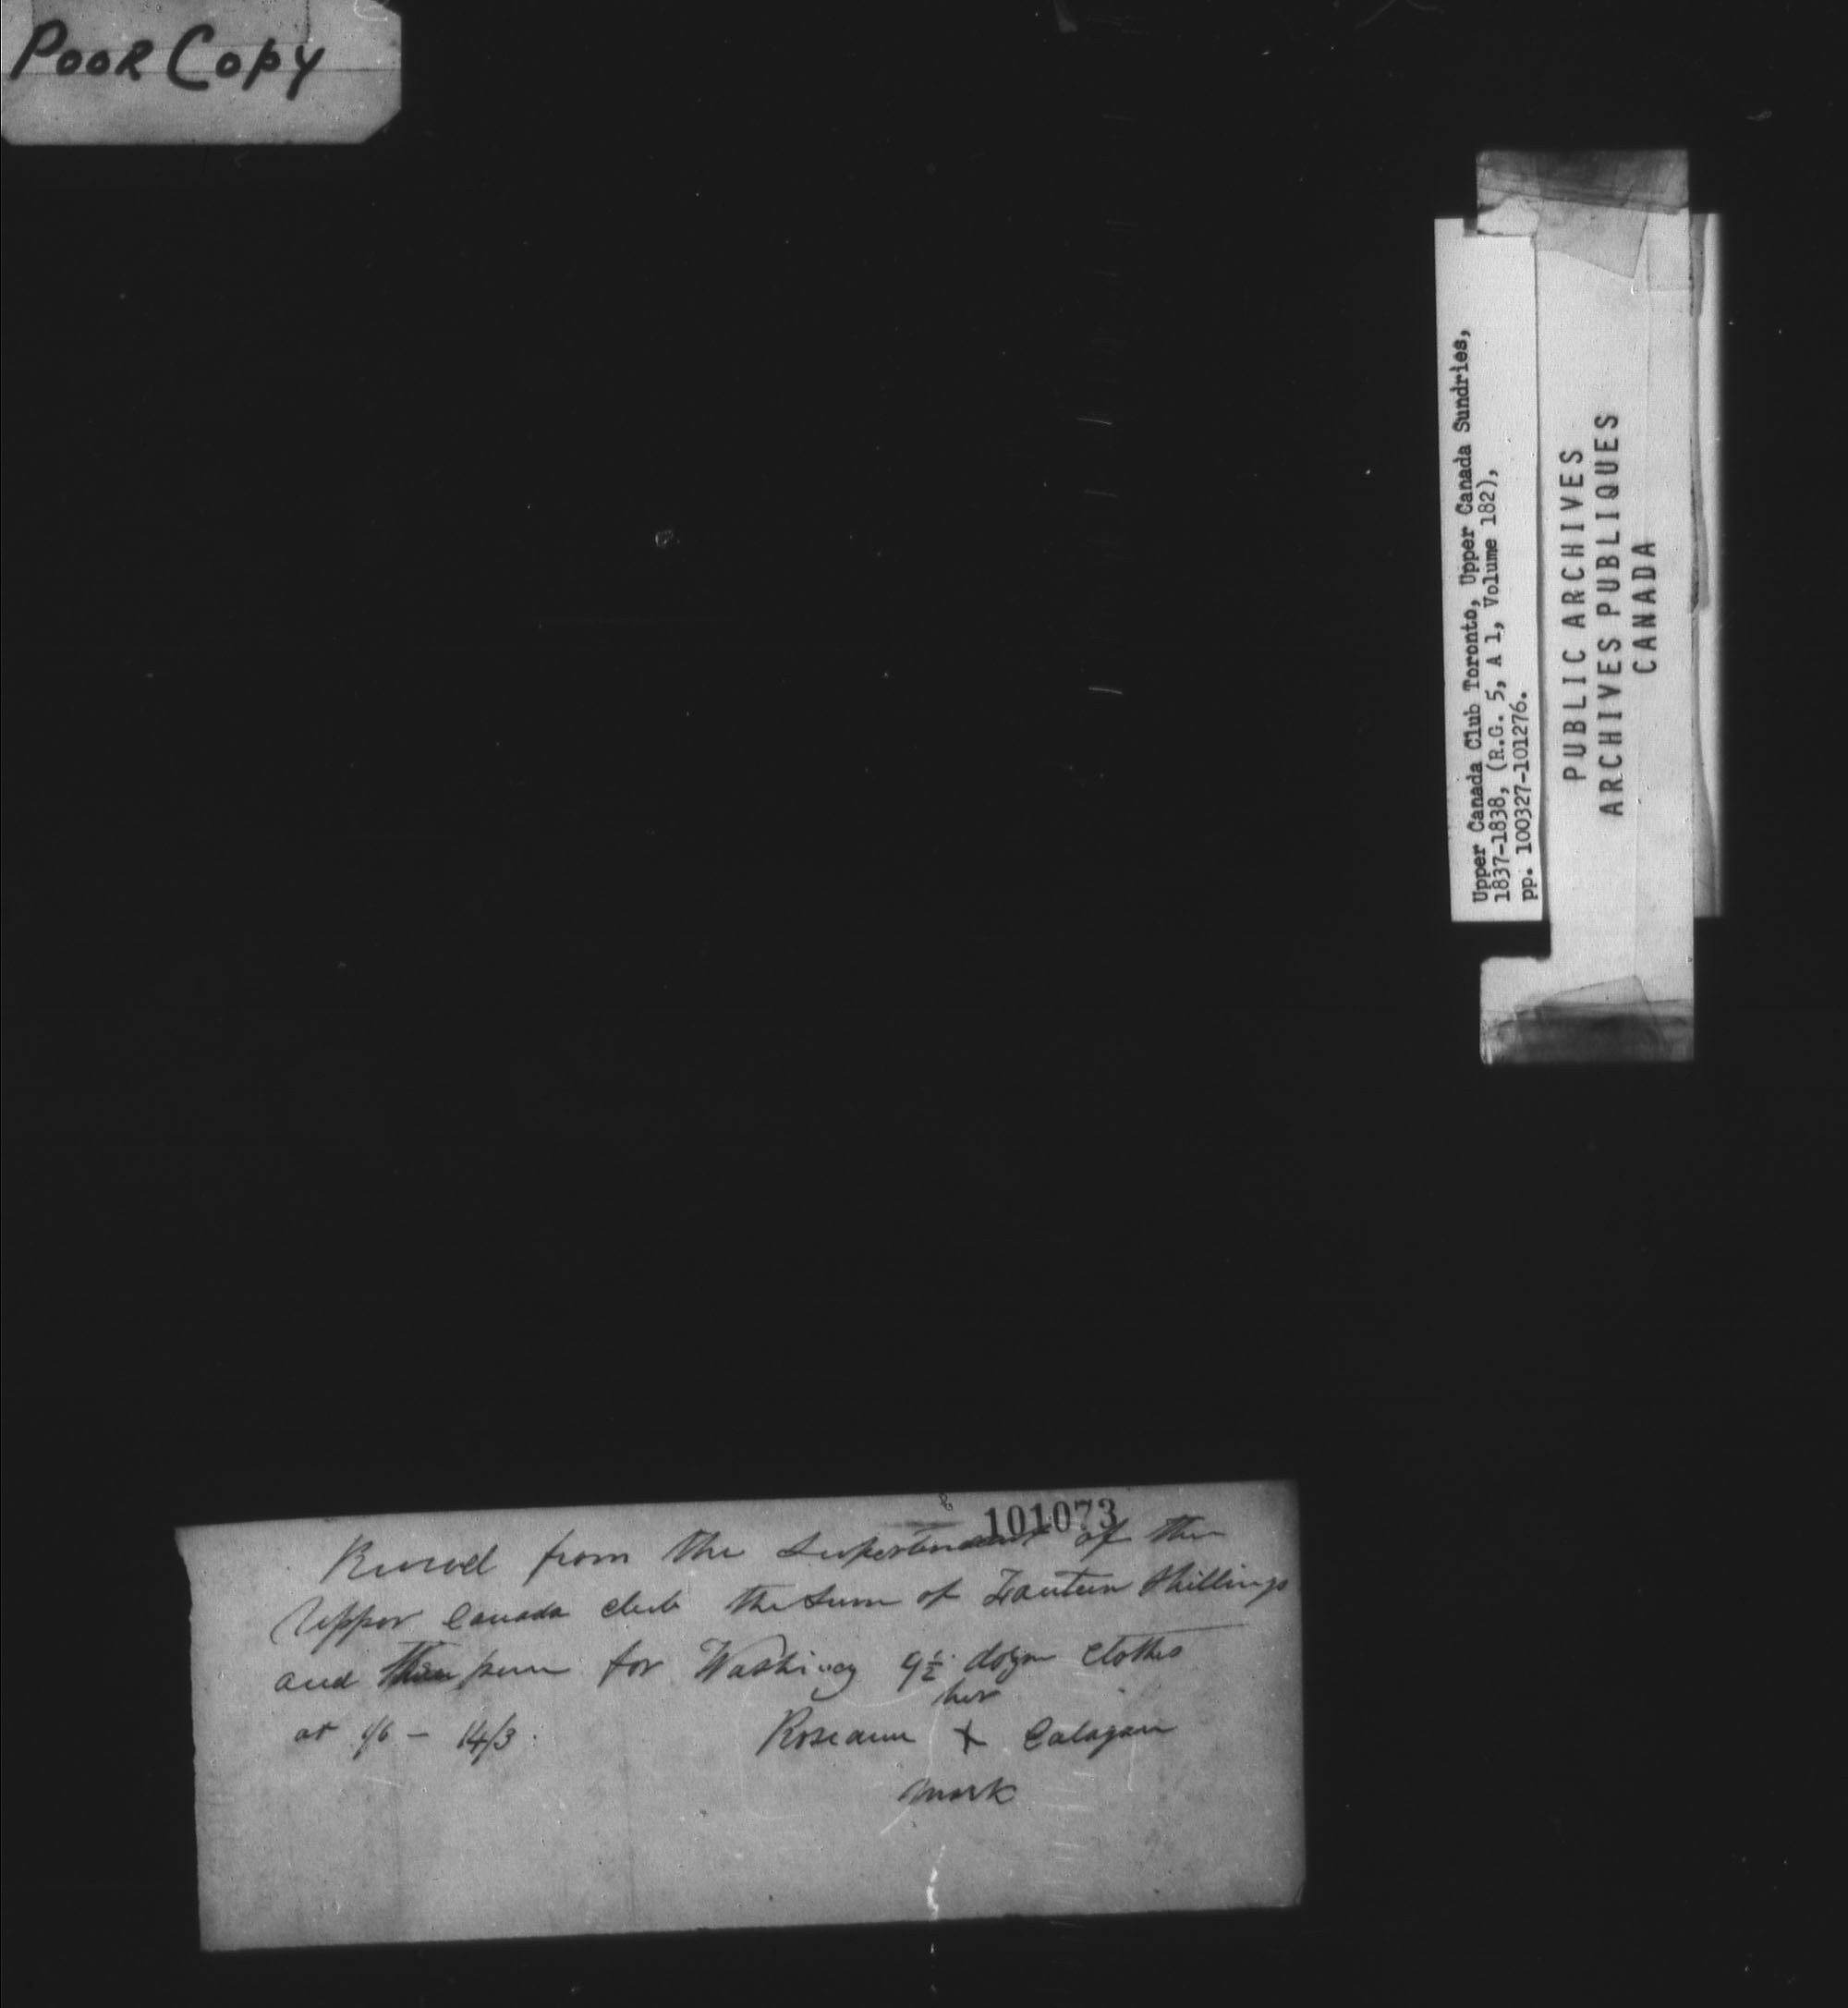 Poor Copy
Upper Canada Club Toronto, Upper Canada Sundries,
1837-1838, (R.G. 5, A 1, Volume 182),
pp. 100327-101276.
PUBLIC ARCHIVES
ARCHIVES PUBLIQUES
CANADA
101073
from the of the
Upper Canada club the Sum of Shillings
and for Washing 9½ dozn clothes
at 1/6 - 14/3.
her
Roseann + Calagan
mark